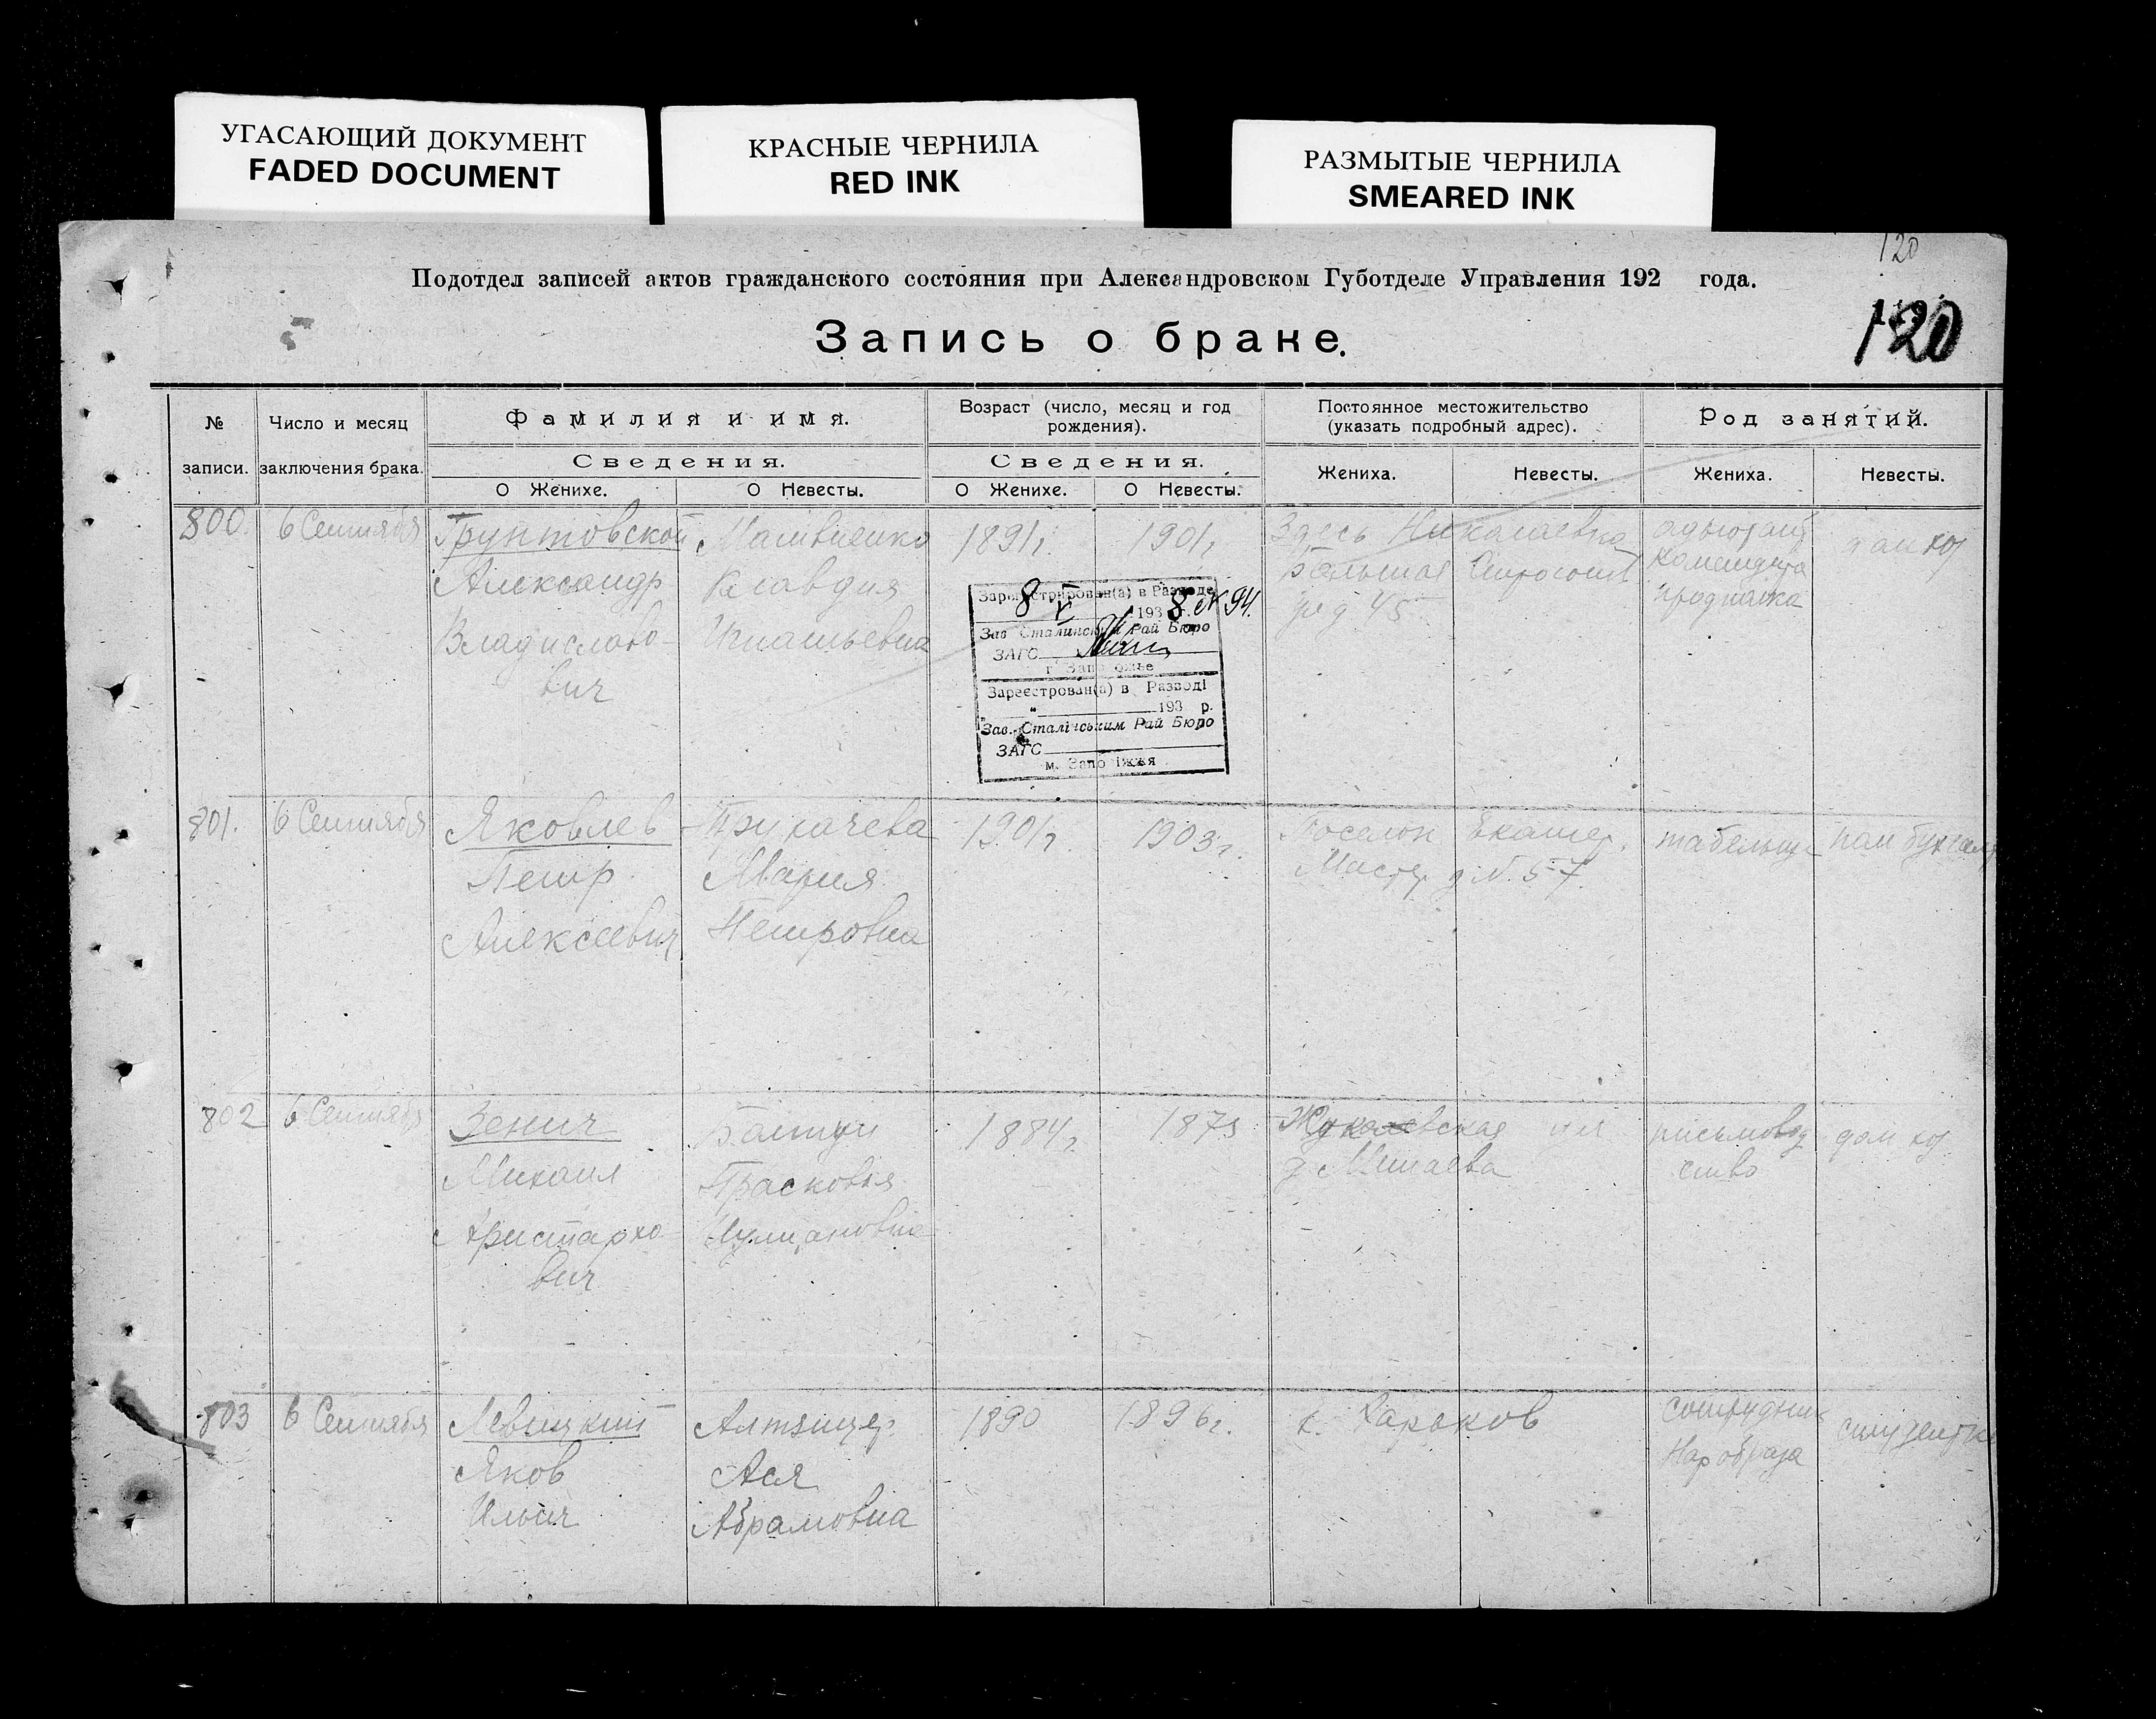 УГАСАЮЩИЙ ДОКУМЕНТ
FADED DOCUMENT
КРАСНЫЕ ЧЕРНИЛА
RED INK
РАЗМЫТЫЕ ЧЕРНИЛА
SMEARED INK
120
Подотдел записей актов гражданского состояния при Александровском Губотделе Управления 192 года.
120
Запись о браке.
№ записи.
Число и месяц заключения брака.
Фамилия и имя.
Сведения.
О Женихе.
О Невесты.
Возраст (число, месяц и год рождения).
Сведения.
О Женихе.
О Невесты.
Постоянное местожительство (указать подробный адрес).
Жениха.
Невесты.
Род занятий.
Жениха.
Невесты.
800.
6 Сентября
Грунтовской
Александр
Владиславо-
вич
Матвиенко
Клавдия
Игнатьевна
1891г.
1901г.
Здесь
Большая
д 45
адъютант
коменданта
дом хоз
Зарегистрирован(а) в Разводе
8 X 1938 г. № 94.
Зав Сталинским Рай Бюро
ЗАГС
г Запорожье
Зареєстрован(а) в Разводі
193 р.
Зав. Сталінським Рай Бюро
ЗАГС
м. Запоріжжя
801.
6 Сентября
Яковлев
Петр
Алексеевич
Мария
Петровна
1901г.
1903г.
Поселок Екатер.
Мастер д N. 57
табельщ
пом бухгалт
802
6 Сентября
Зенич
Михаил
Аристархо-
вич
Прасковья
1884г.
187
д Минаева
письмовод
ство
дом хоз
803
6 Сентября
Левицкий
Яков
Ильич
Ася
Абрамовна
1890
1896г.
г. Харьков
сотрудник
Нар образа
студентка